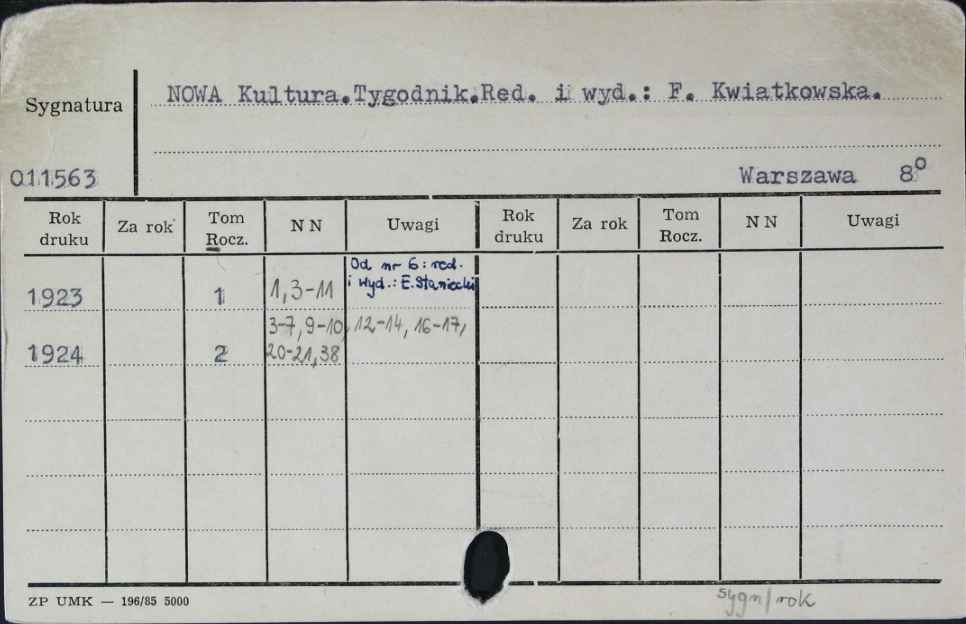 NOWA Kultura.Tygodnik.Red. i wyd.: F. Kwiatkowska.
Sygnatura
011563
Warszawa 8°
Rok druku Za rok Tom Rocz. N N Uwagi Rok druku Za rok Tom Rocz. N N Uwagi
Od nr 6: red.
i wyd.: E. Staniecki
1923 1 1, 3-11
3-7, 9-10, 12-14, 16-17,
1924 2 20-21, 38
ZP UMK — 196/85 5000
sygn/rok